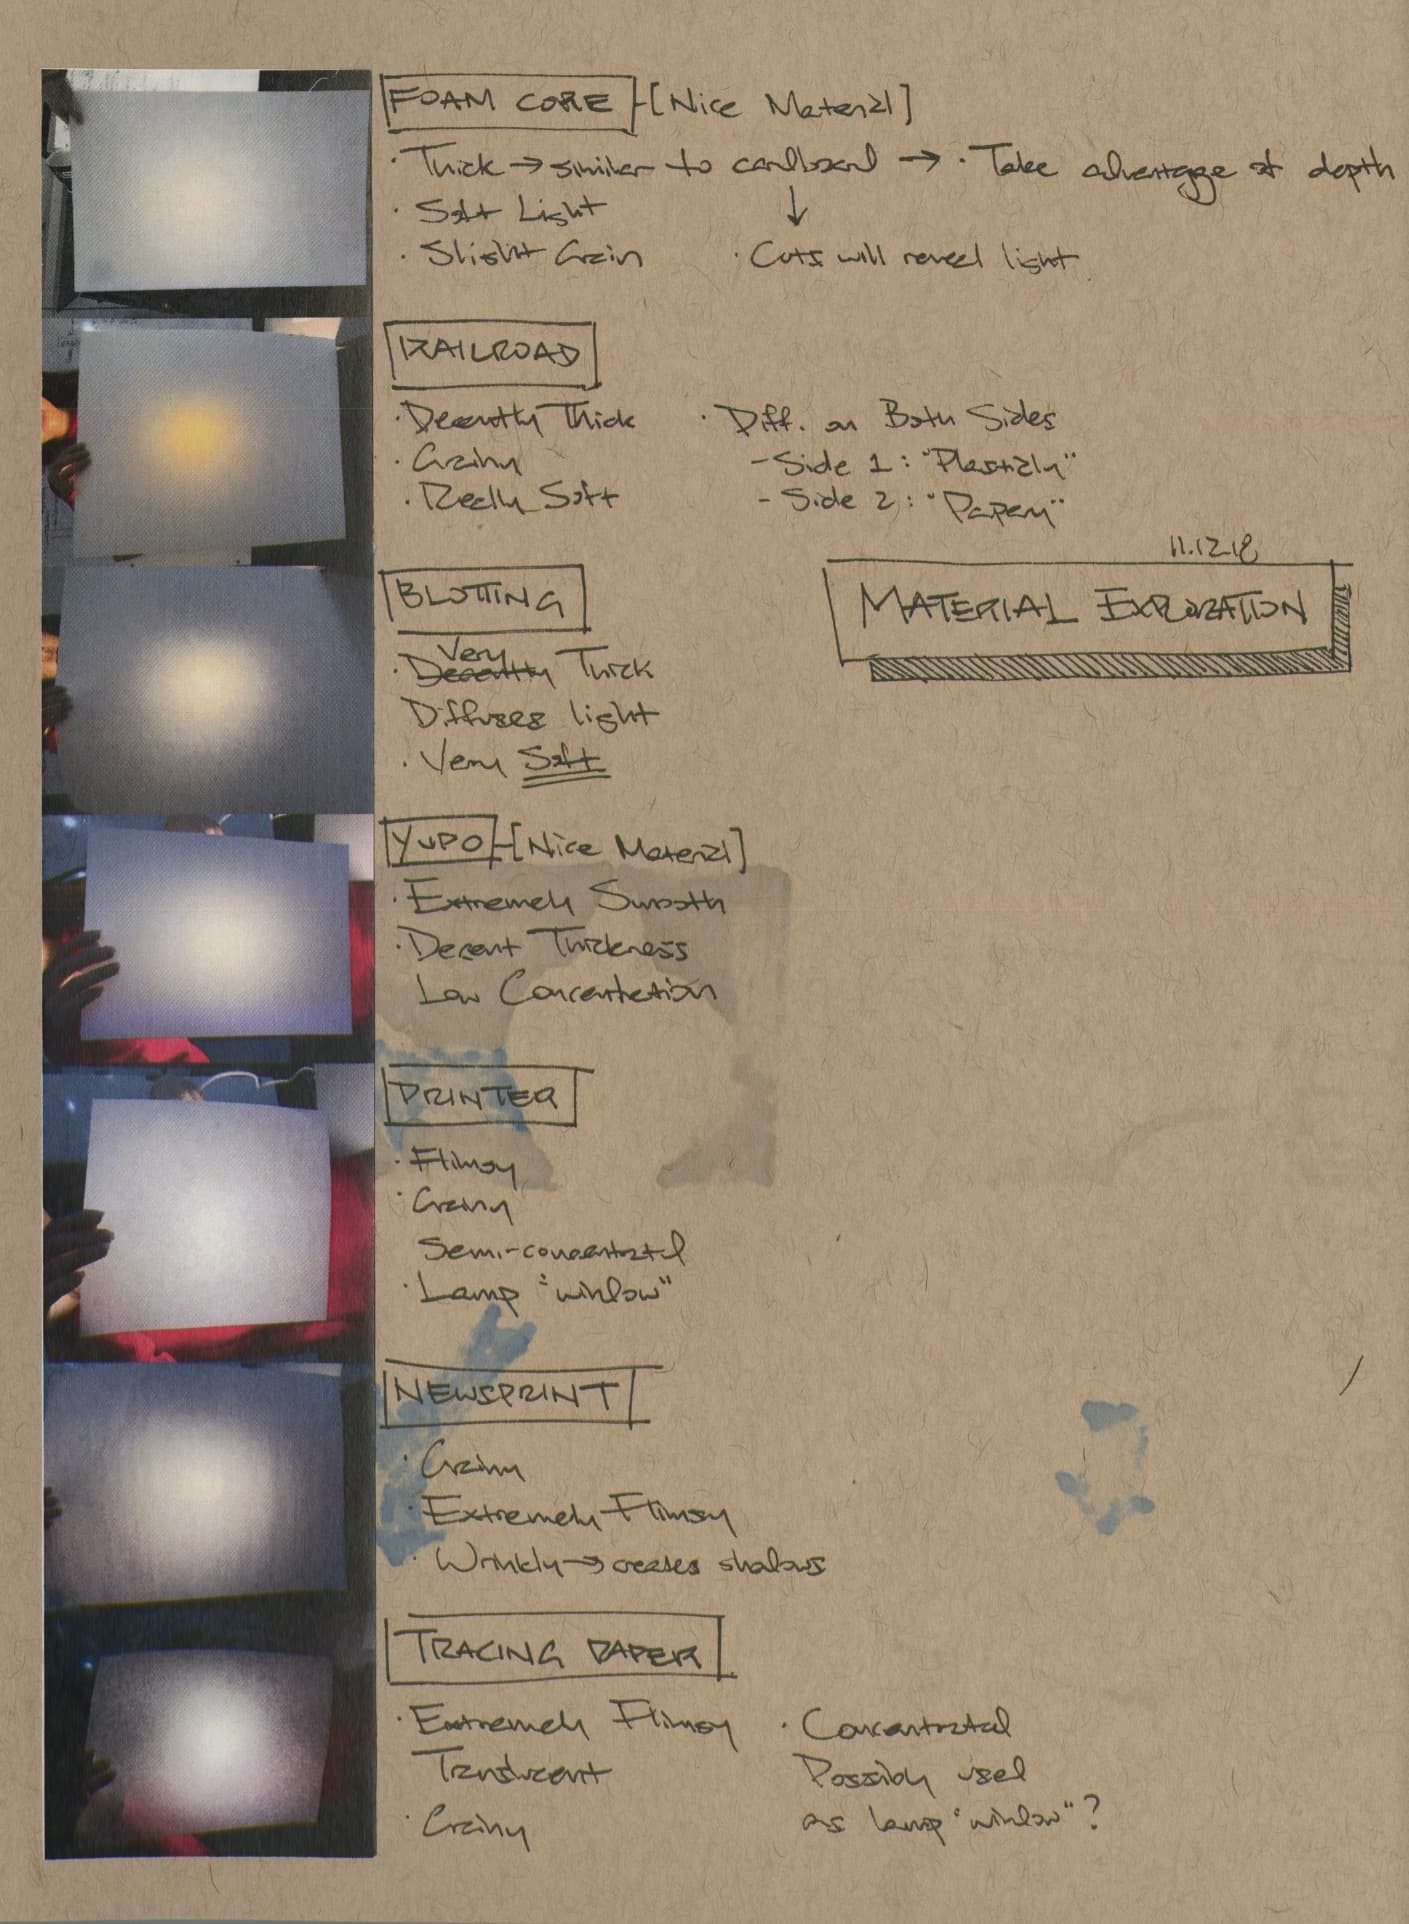 FOAM CORE - [Nice Material]
· Thick → similar to cardboard → · Take advantage of depth
· Soft Light ↓
· Slight Grain · Cuts will reveal light
RAILROAD
· Decently Thick · Diff. on Both Sides
· Grainy - Side 1: "Plasticly"
· Really Soft - Side 2: "Papery"
11.12.18
MATERIAL EXPLORATION
BLOTTING
Very
· Decently Thick
Diffuses light
· Very Soft
YUPO - [Nice Material]
· Extremely Smooth
· Decent Thickness
Low Concentration
PRINTER
· Flimsy
· Grainy
Semi-concentrated
· Lamp "window"
NEWSPRINT
· Grainy
· Extremely Flimsy
· Wrinkly → creases shadows
TRACING PAPER
· Extremely Flimsy · Concentrated
Translucent Possibly used
· Grainy as lamp "window"?